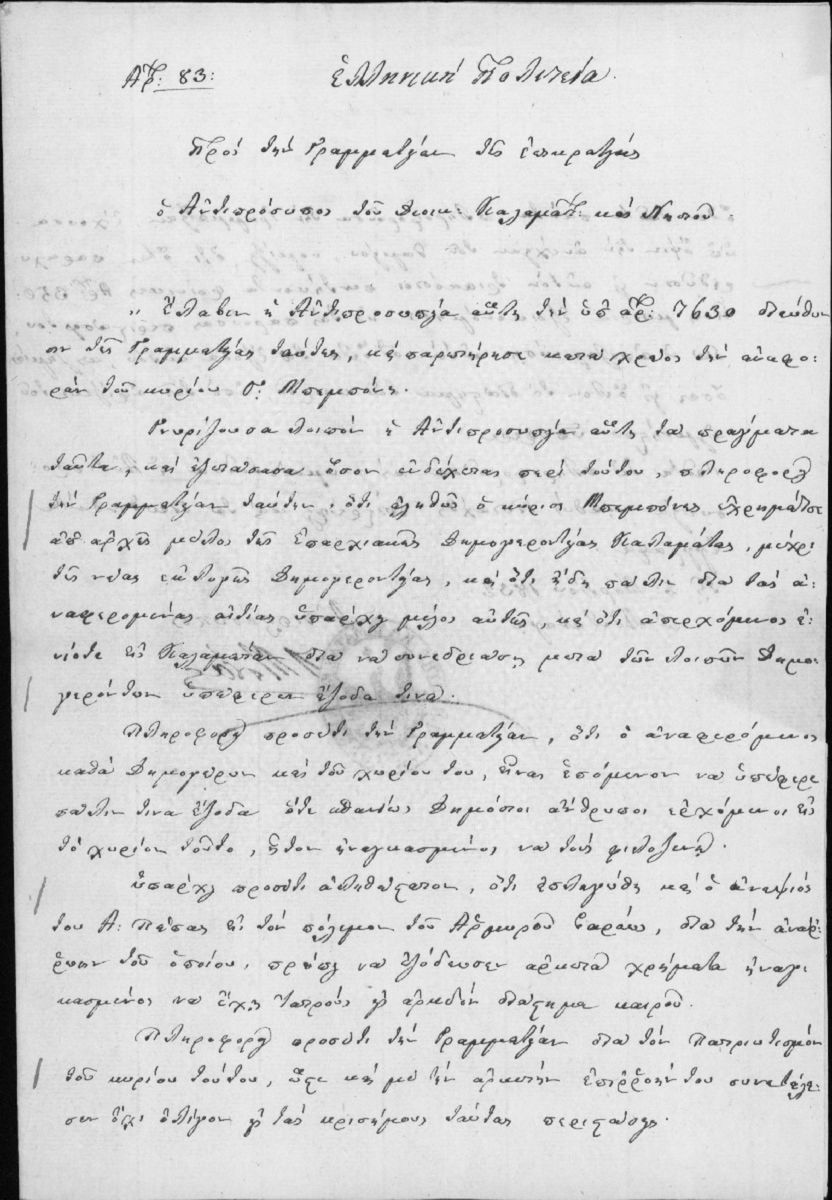 Ἀρ: 83:
Ἑλληνική Πολιτεία.
Πρός τήν Γραμματείαν τῆς ἐπικρατείας
ὁ Ἀντιπρόσωπος τοῦ Διοικ: Καλαμάτ: καί Νησίου:
„ Ἔλαβεν ἡ Ἀντιπροσωπεία αὕτη τήν ὑπ' ἀρ: 7630 διεύθυν
σιν τῆς Γραμματείας ταύτης, καί παρετήρησε κατά χρέος τήν ἀναφο-
ράν τοῦ κυρίου Γ: Μπεμπόνη.
Γνωρίζουσα λοιπόν ἡ Ἀντιπροσωπεία αὕτη τά πράγματα
ταῦτα, καί ἐξετάσασα ὅσον ἐνδέχεται περί τούτου, πληροφορεῖ
τήν Γραμματείαν ταύτην, ὅτι ἀληθῶς ὁ κύριος Μπεμπόνης ἐχρημάτισε
ἀπ' ἀρχῆς μέλος τῆς Ἐπαρχιακῆς Δημογεροντίας Καλαμάτας, μέχρι
τῆς νέας ἐκλογῆς Δημογεροντίας, καί ὅτι ἤδη πάλιν διά τάς ἀ-
ναφερομένας αἰτίας ὑπάρχει μέλος αὐτῆς, καί ὅτι ἀπερχόμενος ἐ-
νίοτε εἰς Καλαμάταν διά νά συνεδριάσῃ μετά τῶν λοιπῶν Δημο-
γερόντων ὑπέφερεν ἔξοδά τινα.
Πληροφορεῖ προσέτι τήν Γραμματείαν, ὅτι ὁ ἀναφερόμενος
καθό Δημογέρων καί τοῦ χωρίου του, εἶναι ἑπόμενον νά ὑπέφερε
πάλιν τινά ἔξοδα ὅτε Δημόσιοι ἄνθρωποι ἐρχόμενοι εἰς
τό χωρίον τοῦτο, ἦτον ἠναγκασμένος νά τούς φιλοξενῇ.
Ὑπάρχει προσέτι ἀληθέστατον, ὅτι ἐπληγώθη καί ὁ ἀνεψιός
του Α: Πέπας εἰς τόν πόλεμον τοῦ Ἀρμυροῦ, διά τήν ἀνάρ-
ρωσιν τοῦ ὁποίου, πρέπει νά ἐξόδευσεν ἀρκετά χρήματα ἠναγ-
κασμένος νά ἔχῃ Ἰατρούς ἐπ' ἀρκετόν διάστημα καιροῦ.
Πληροφορεῖ προσέτι τήν Γραμματείαν διά τόν Πατριωτισμόν
τοῦ κυρίου τούτου, ὥστε καί με τήν ἀρκετήν ἐπιρροήν του συνετέλε-
σεν ὄχι ὀλίγον εἰς τάς κρισίμους ταύτας περιστάσεις.